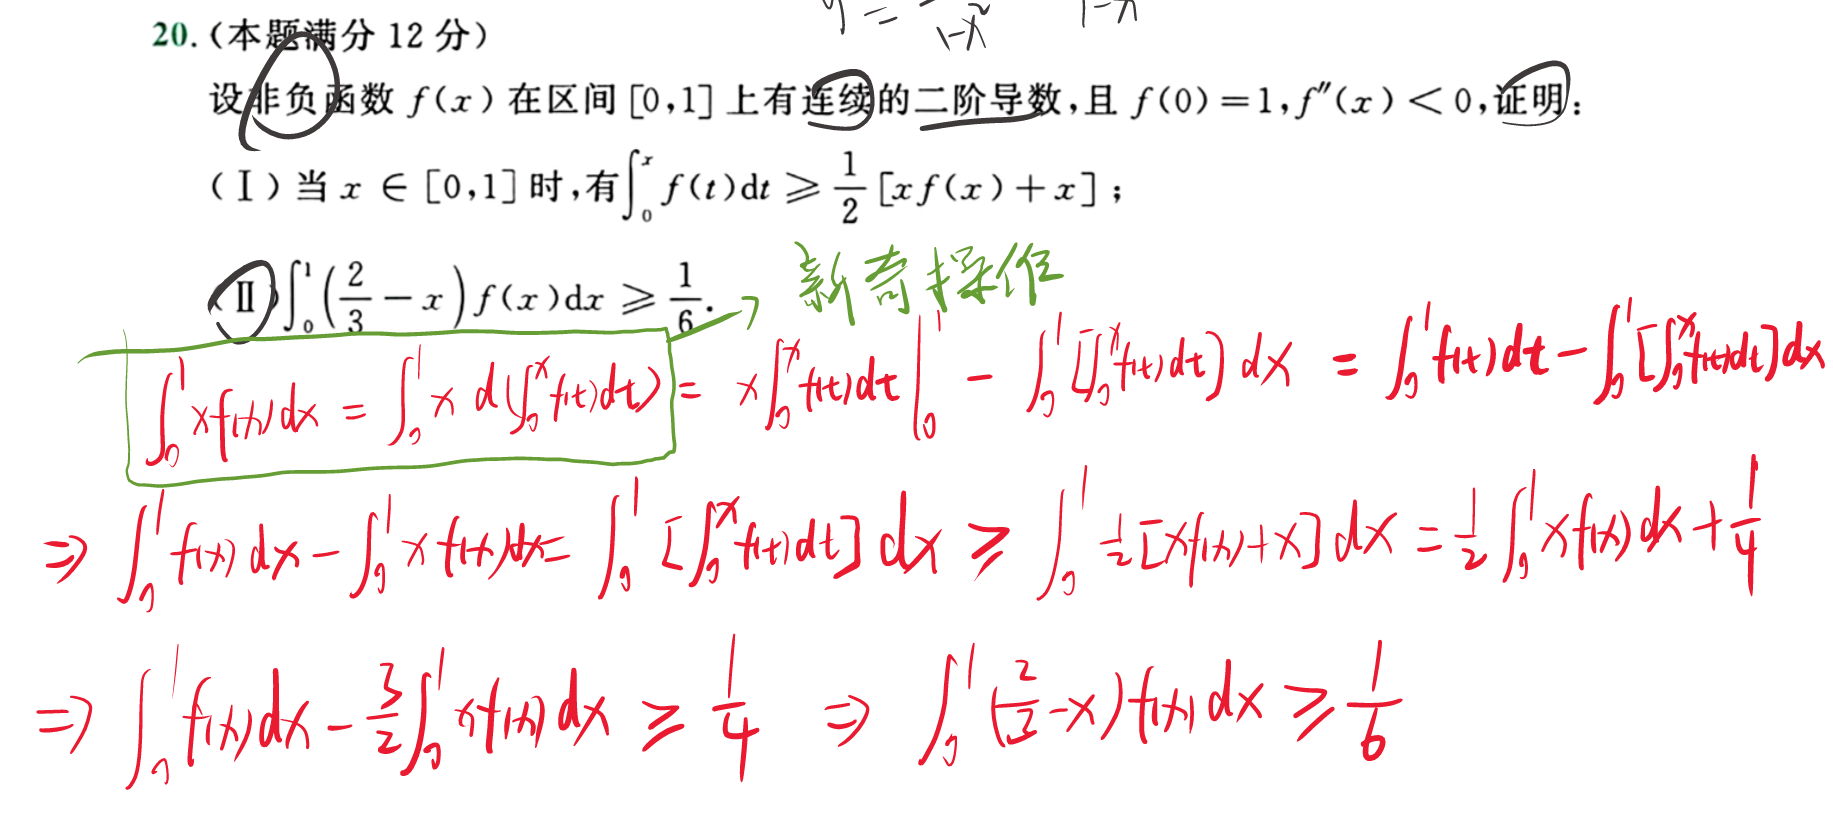 y = 1-x² 1-x
20.(本题满分 12 分)
设非负函数 f(x) 在区间 [0,1] 上有连续的二阶导数,且 f(0)=1,f″(x)<0,证明:
(Ⅰ)当 x ∈ [0,1] 时,有∫₀ˣ f(t)dt ⩾ 1/2 [xf(x)+x];
(Ⅱ)∫₀¹(2/3 − x)f(x)dx ⩾ 1/6.
新奇操作
∫₀¹ xf(x)dx = ∫₀¹ x d(∫₀ˣ f(t)dt) = x∫₀ˣ f(t)dt |₀¹ − ∫₀¹ [∫₀ˣ f(t)dt] dx = ∫₀¹ f(t)dt − ∫₀¹ [∫₀ˣ f(t)dt]dx
⇒ ∫₀¹ f(x)dx − ∫₀¹ xf(x)dx = ∫₀¹ [∫₀ˣ f(t)dt] dx ⩾ ∫₀¹ 1/2 [xf(x)+x] dx = 1/2 ∫₀¹ xf(x)dx + 1/4
⇒ ∫₀¹ f(x)dx − 3/2 ∫₀¹ xf(x)dx ⩾ 1/4 ⇒ ∫₀¹ (2/3 − x)f(x)dx ⩾ 1/6